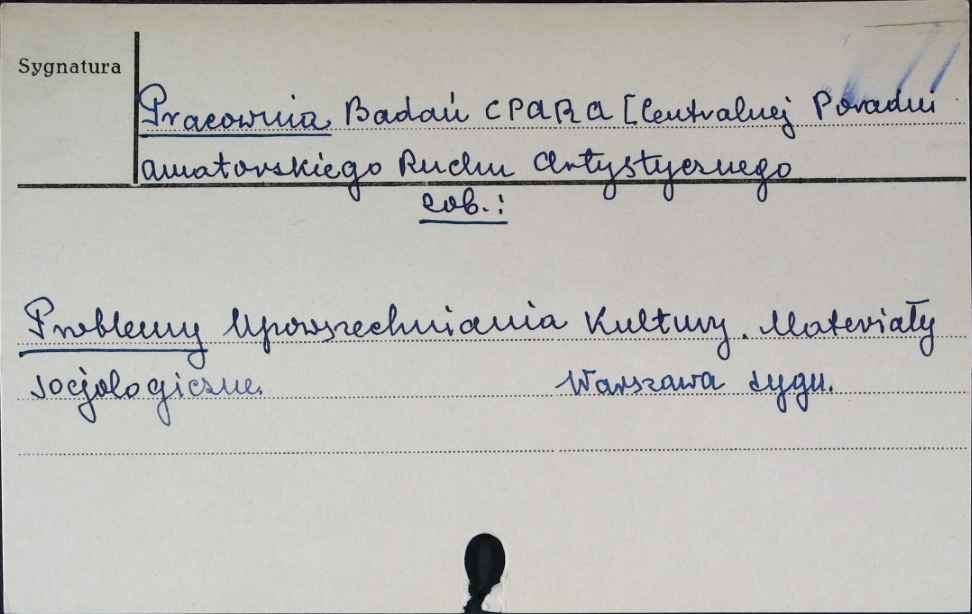 Sygnatura
Pracownia Badań CPARA [Centralnej Poradni
amatorskiego Ruchu Artystycznego
zob.:
Problemy Upowszechniania Kultury. Materiały
socjologiczne. Warszawa sygn.